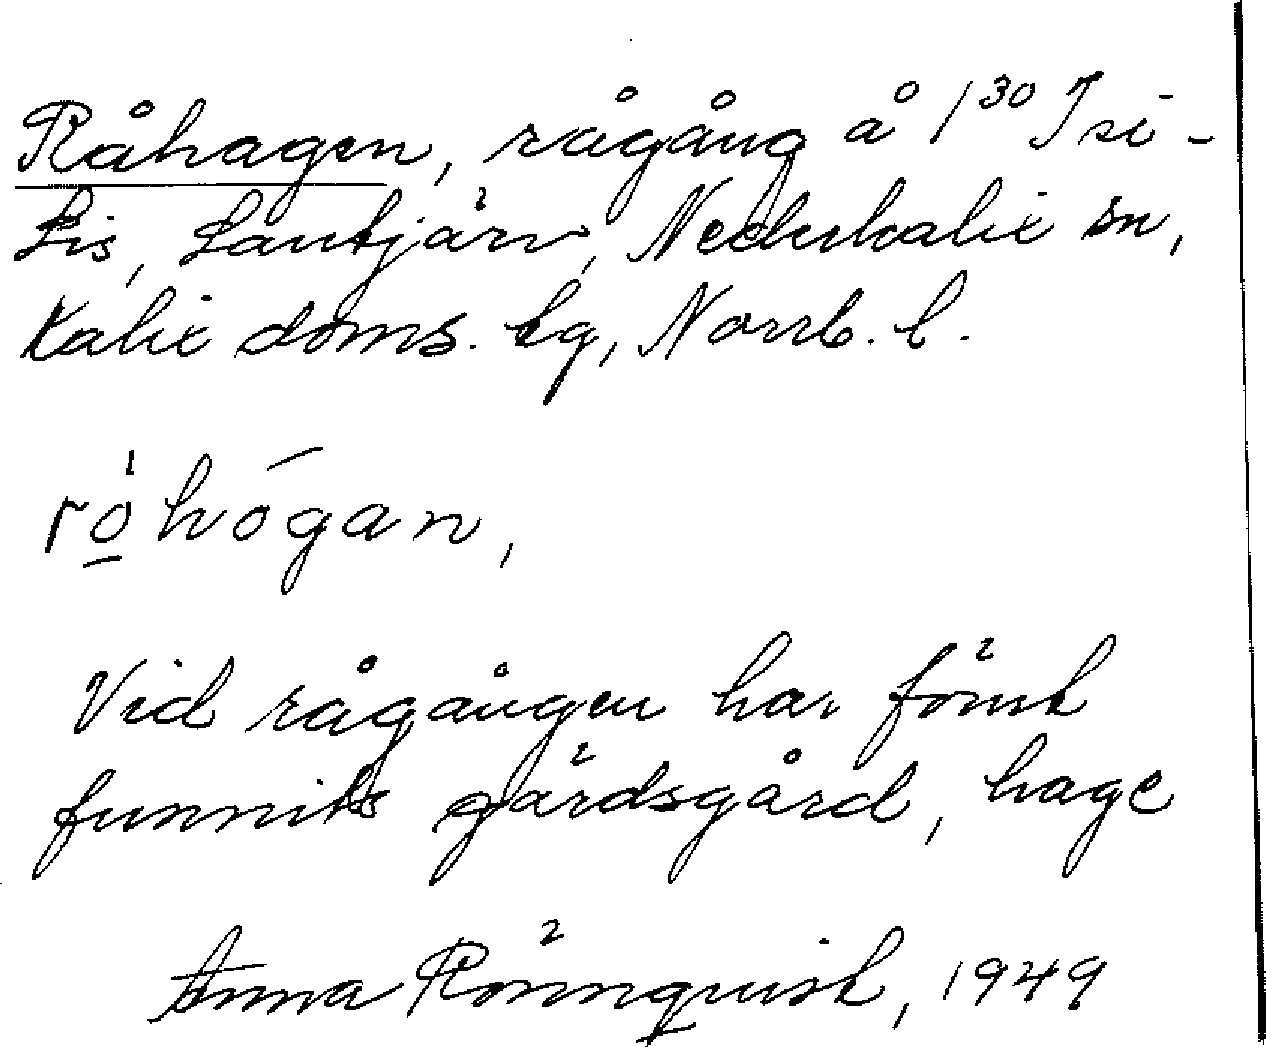 Råhagen, rågång å 1³⁰ Isi-
Lis, Lantjärv, Nederkalix sn,
Kalix doms. tg, Norrb. l.
rò̱hógan,
Vid rågången har förut
funnits gärdsgård, hage
Anna Rönnquist, 1949